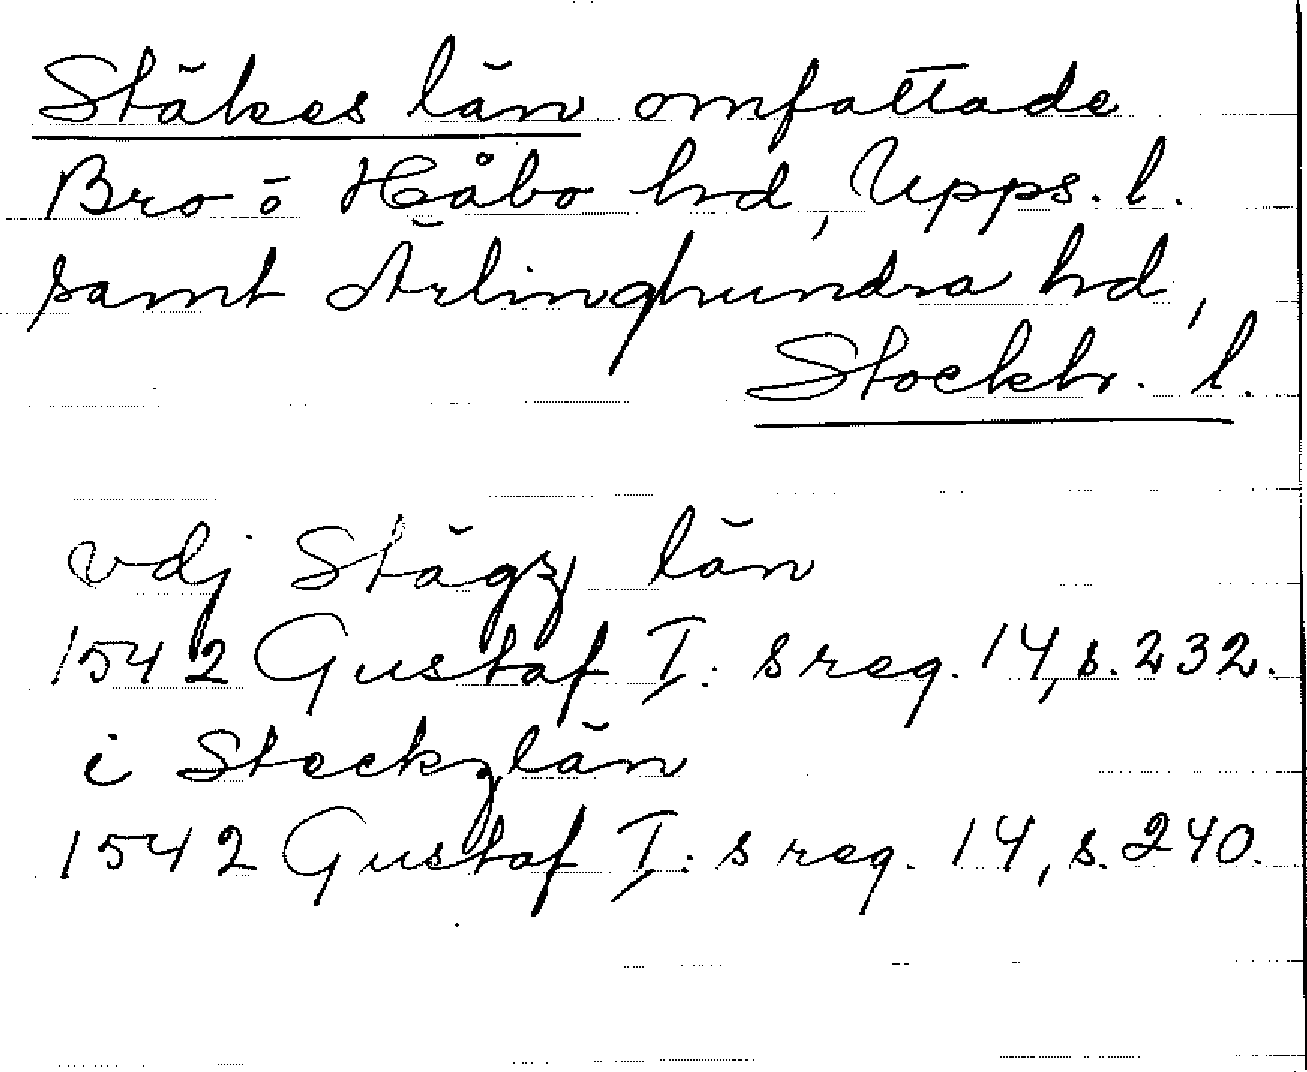 Stäkes län omfattade
Bro o Håbo hd, Upps. l.
samt Ärlinghundra hd,
Stockh. l.
vdj Stägz län
1542 Gustaf I:s reg. 14, s. 232.
i Steckzlän
1542 Gustaf I:s reg. 14, s. 240.